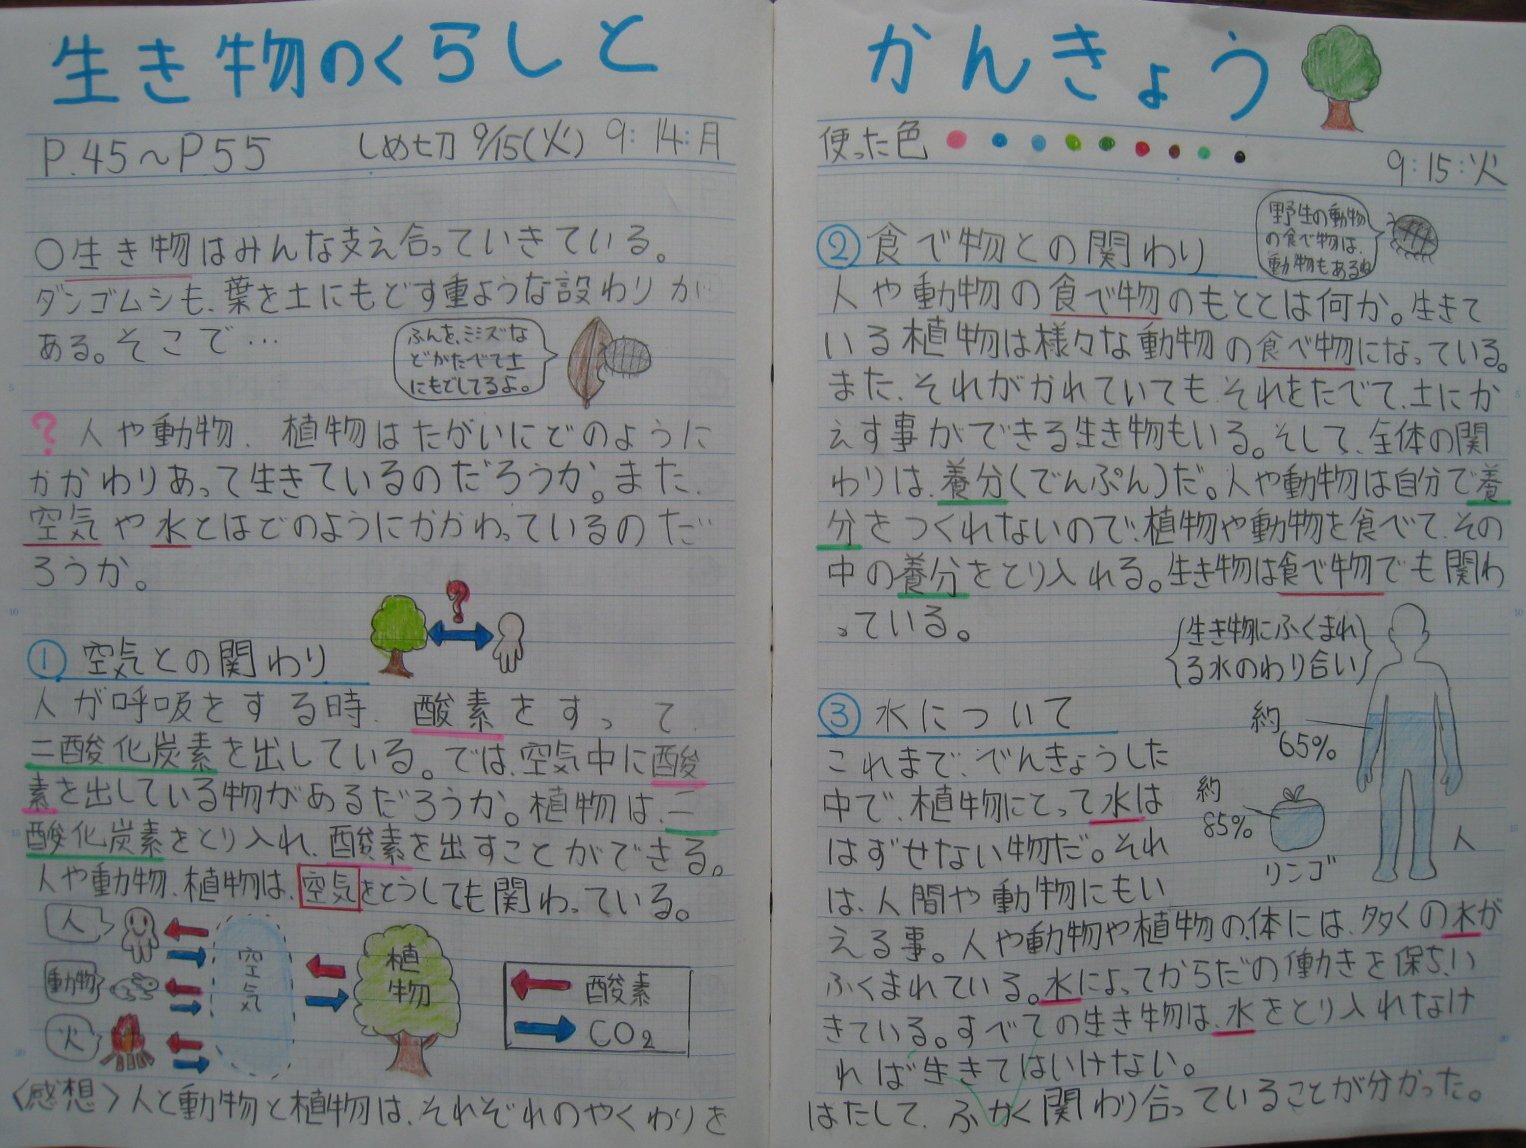 生き物のくらしと
P.45〜P.55 しめ切 9/15(火) 9:14:月
○生き物はみんな支え合っていきている。
ダンゴムシも、葉を土にもどす重ような設わりが
ある。そこで…
ふんを、ミミズな
どがたべて土
にもどしてるよ。
? 人や動物、植物はたがいにどのように
かかわりあって生きているのだろうか。また、
空気や水とはどのようにかかわっているのだ
ろうか。
?
① 空気との関わり
人が呼吸をする時、酸素をすって、
二酸化炭素を出している。では、空気中に酸
素を出している物があるだろうか。植物は、二
酸化炭素をとり入れ、酸素を出すことができる。
人や動物、植物は、空気をどうしても関わっている。
人
動物
火
空気
植物
酸素
CO2
〈感想〉人と動物と植物は、それぞれのやくわりを
かんきょう
使った色
9:15:火
② 食べ物との関わり
野生の動物
の食べ物は、
動物もあるね
人や動物の食べ物のもととは何か。生きて
いる植物は様々な動物の食べ物になっている。
また、それがかれていてもそれをたべて、土にか
えす事ができる生き物もいる。そして、全体の関
わりは、養分(でんぷん)だ。人や動物は自分で養
分をつくれないので、植物や動物を食べて、その
中の養分をとり入れる。生き物は食べ物でも関わ
っている。
(生き物にふくまれ
る水のわり合い)
約65%
人
約85%
リンゴ
③ 水について
これまで、べんきょうした
中で、植物にとって水は
はずせない物だ。それ
は、人間や動物にもい
える事。人や動物や植物の、体には、多くの水が
ふくまれている。水によってからだの働きを保ち、い
きている。すべての生き物は、水をとり入れなけ
れば生きてはいけない。
はたして、ふかく関わり合っていることが分かった。